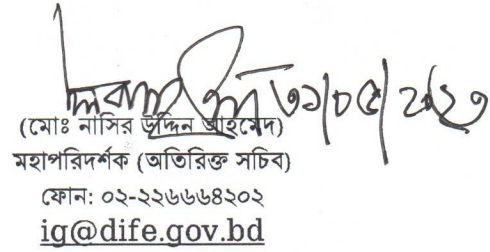 ৩১/০৫/২০২৩
(মোঃ নাসির উদ্দিন আহমেদ)
মহাপরিদর্শক (অতিরিক্ত সচিব)
ফোন: ০২-২২৬৬৬৪২০২
ig@dife.gov.bd